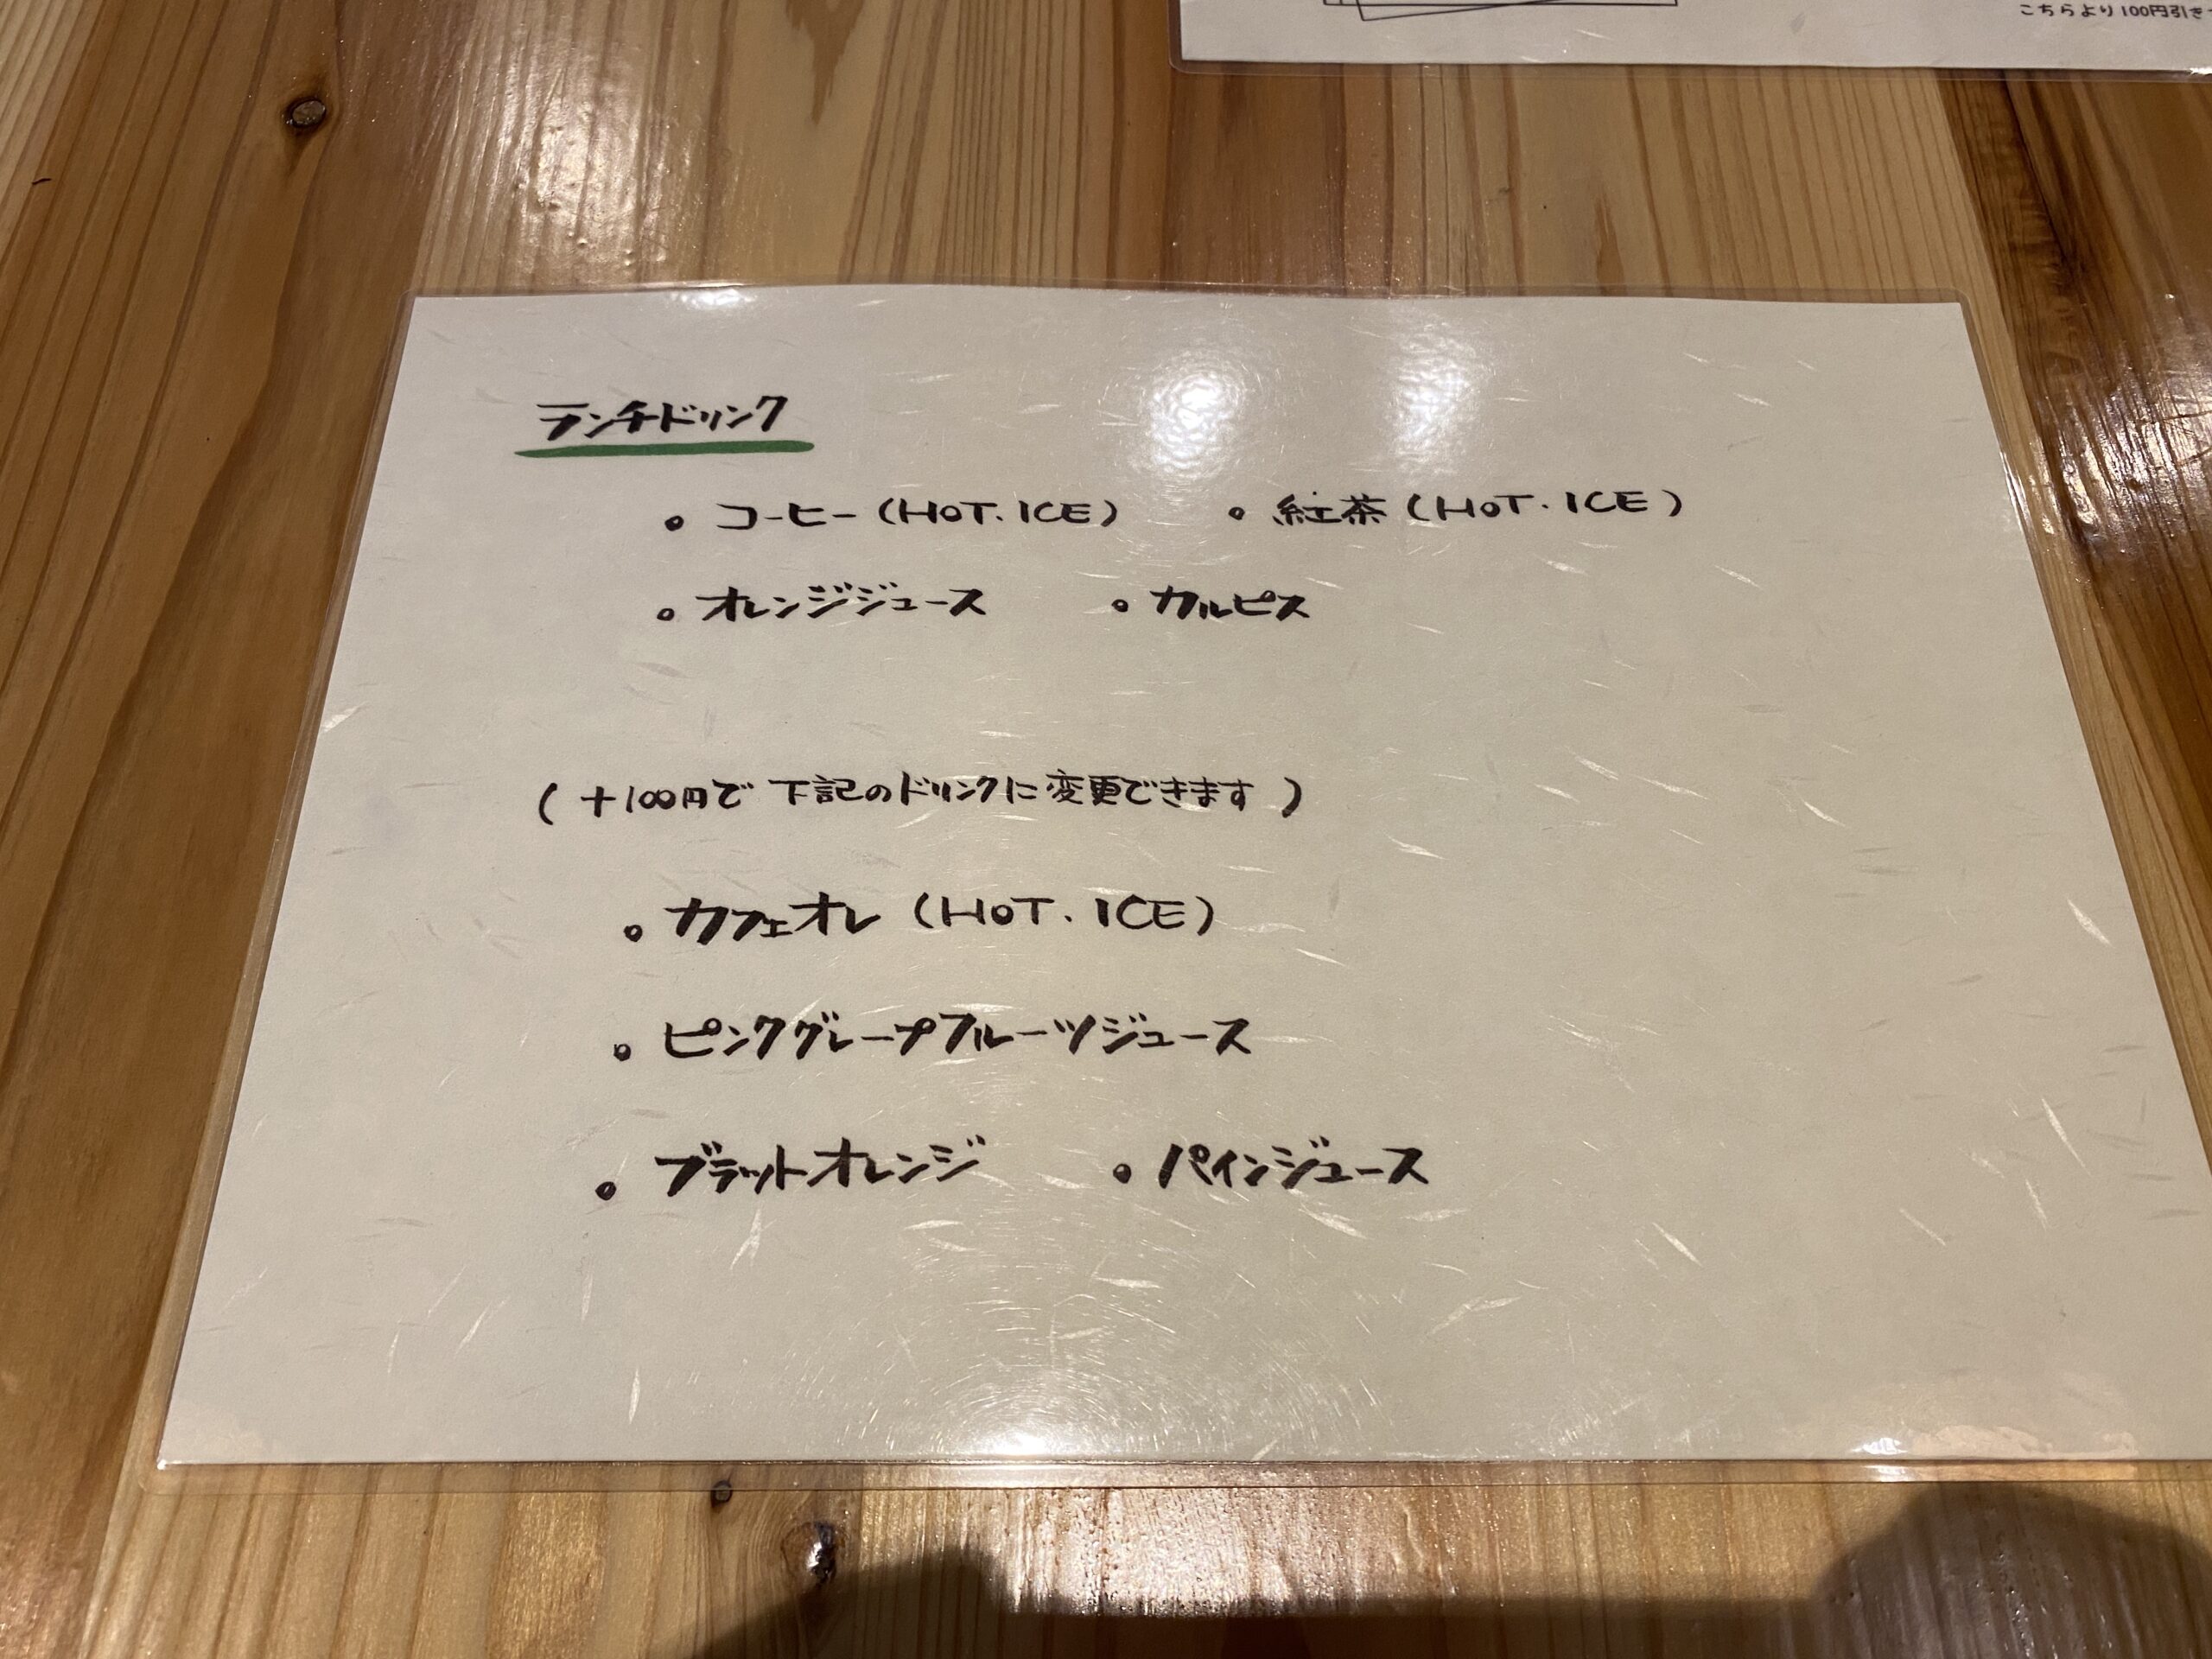 こちらより100円引き
ランチドリンク
• コーヒー (HOT. ICE) • 紅茶 (HOT. ICE)
• オレンジジュース • カルピス
( +100円で 下記のドリンクに変更できます )
• カフェオレ (HOT. ICE)
• ピンクグレープフルーツジュース
• ブラットオレンジ • パインジュース